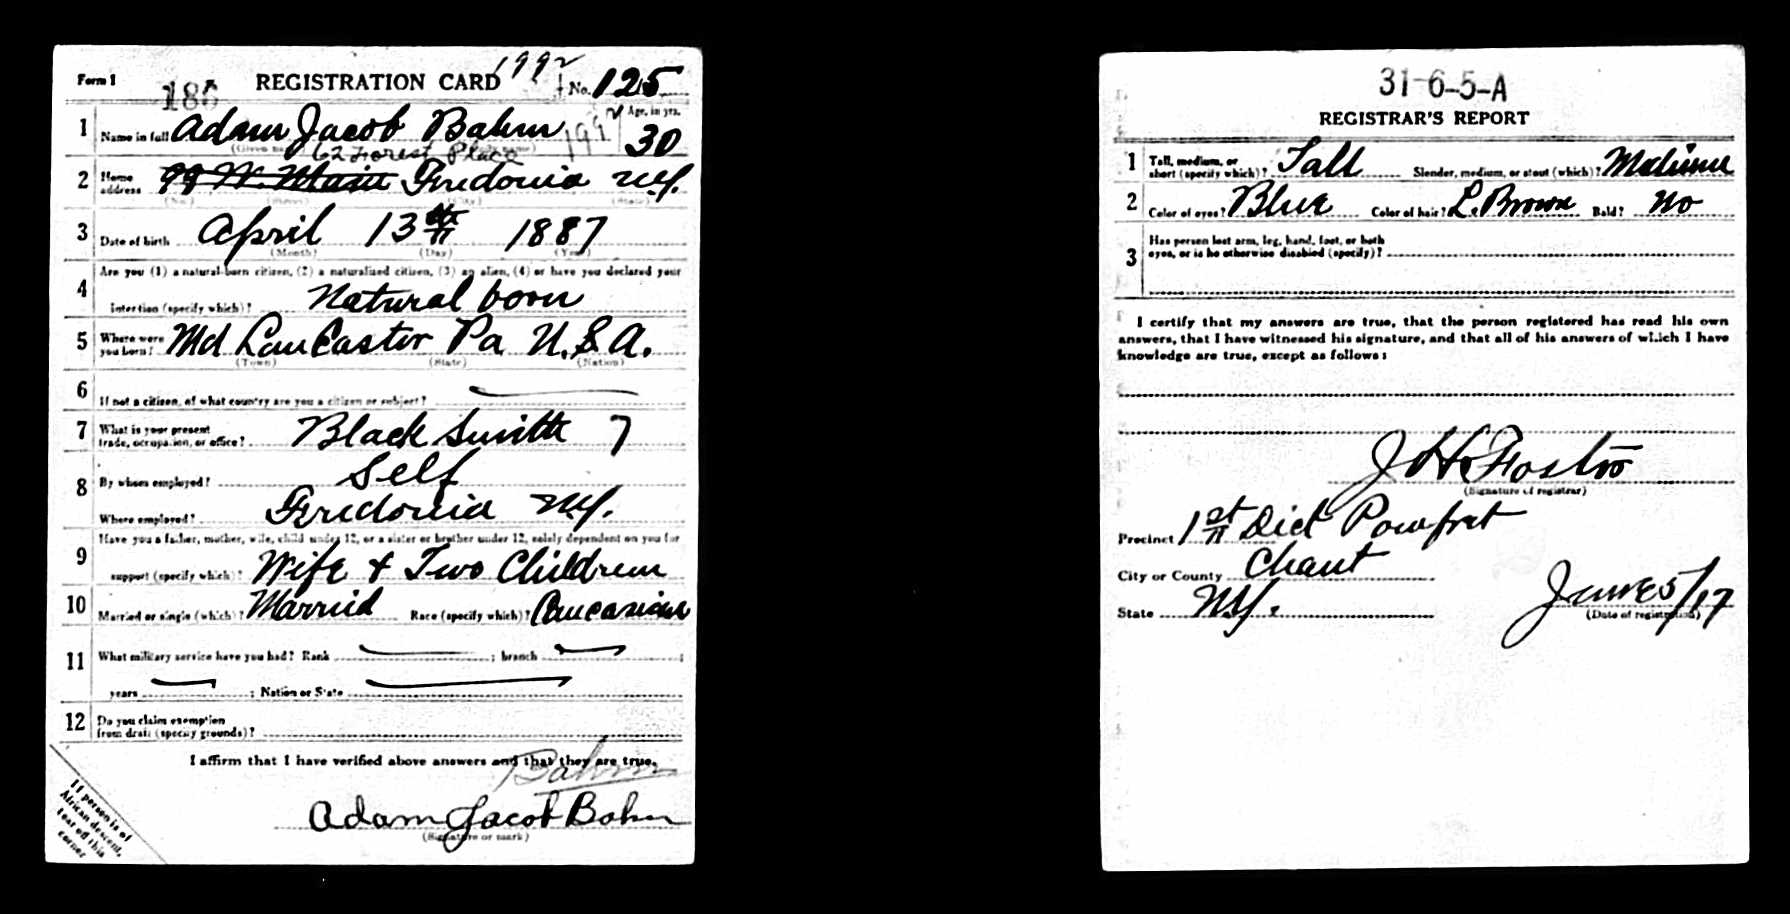 Form 1 186 REGISTRATION CARD 1992 No. 125
1 Name in full Adam Jacob Bahm 1992 Age, in yrs. 30
(Given name) (Family name)
62 Forest Place
2 Home address 99 W. Main Fredonia NY.
(No.) (Street) (City) (State)
3 Date of birth April 13th 1887
(Month) (Day) (Year)
4 Are you (1) a natural-born citizen, (2) a naturalized citizen, (3) an alien, (4) or have you declared your
intention (specify which)? Natural born
5 Where were you born? Md Lancaster Pa U.S.A.
(Town) (State) (Nation)
6 If not a citizen, of what country are you a citizen or subject?
7 What is your present trade, occupation, or office? Black Smith 7
8 By whom employed? Self
Where employed? Fredonia NY.
9 Have you a father, mother, wife, child under 12, or a sister or brother under 12, solely dependent on you for
support (specify which)? Wife & Two Children
10 Married or single (which)? Married Race (specify which)? Caucasian
11 What military service have you had? Rank ; branch ;
years ; Nation or State
12 Do you claim exemption from draft (specify grounds)?
I affirm that I have verified above answers and that they are true.
Bahm
Adam Jacob Bahm
(Signature or mark)
If person is of
African descent,
tear off this
corner
31-6-5-A
REGISTRAR'S REPORT
1 Tall, medium, or short (specify which)? Tall Slender, medium, or stout (which)? Medium
2 Color of eyes? Blue Color of hair? L. Brown Bald? No
3 Has person lost arm, leg, hand, foot, or both
eyes, or is he otherwise disabled (specify)?
I certify that my answers are true, that the person registered has read his own
answers, that I have witnessed his signature, and that all of his answers of which I have
knowledge are true, except as follows:
J H Foster
(Signature of registrar)
Precinct 1st Dict Pomfret
City or County Chaut
State NY. June 5/17
(Date of registration)